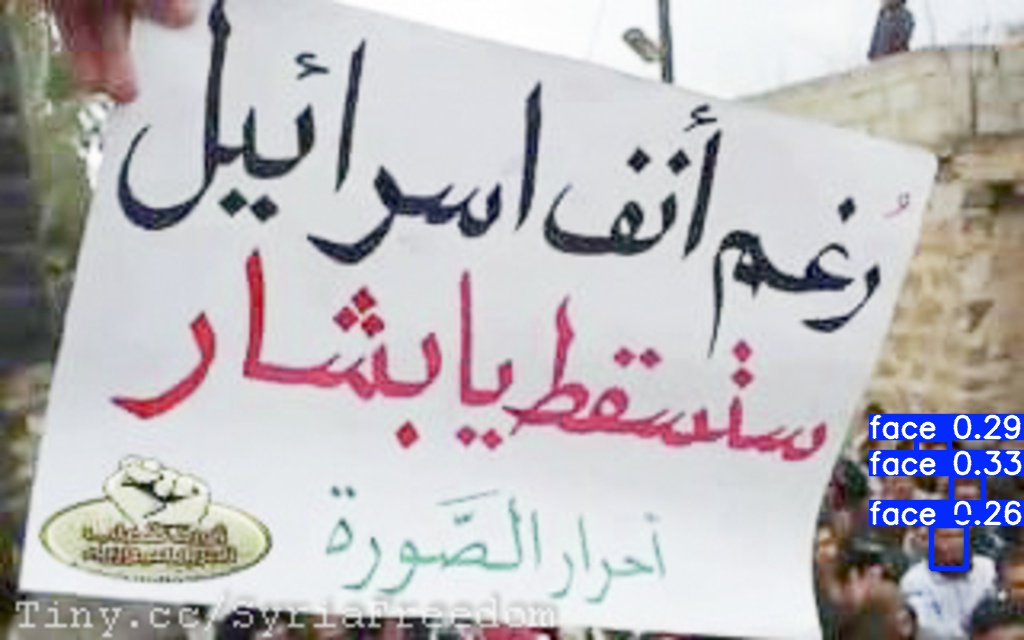 رُغم أنف اسرائيل
ستسقط يا بشار
أحرار الصَّورة
Tiny.cc/SyriaFreedom
face 0.29
face 0.33
face 0.26